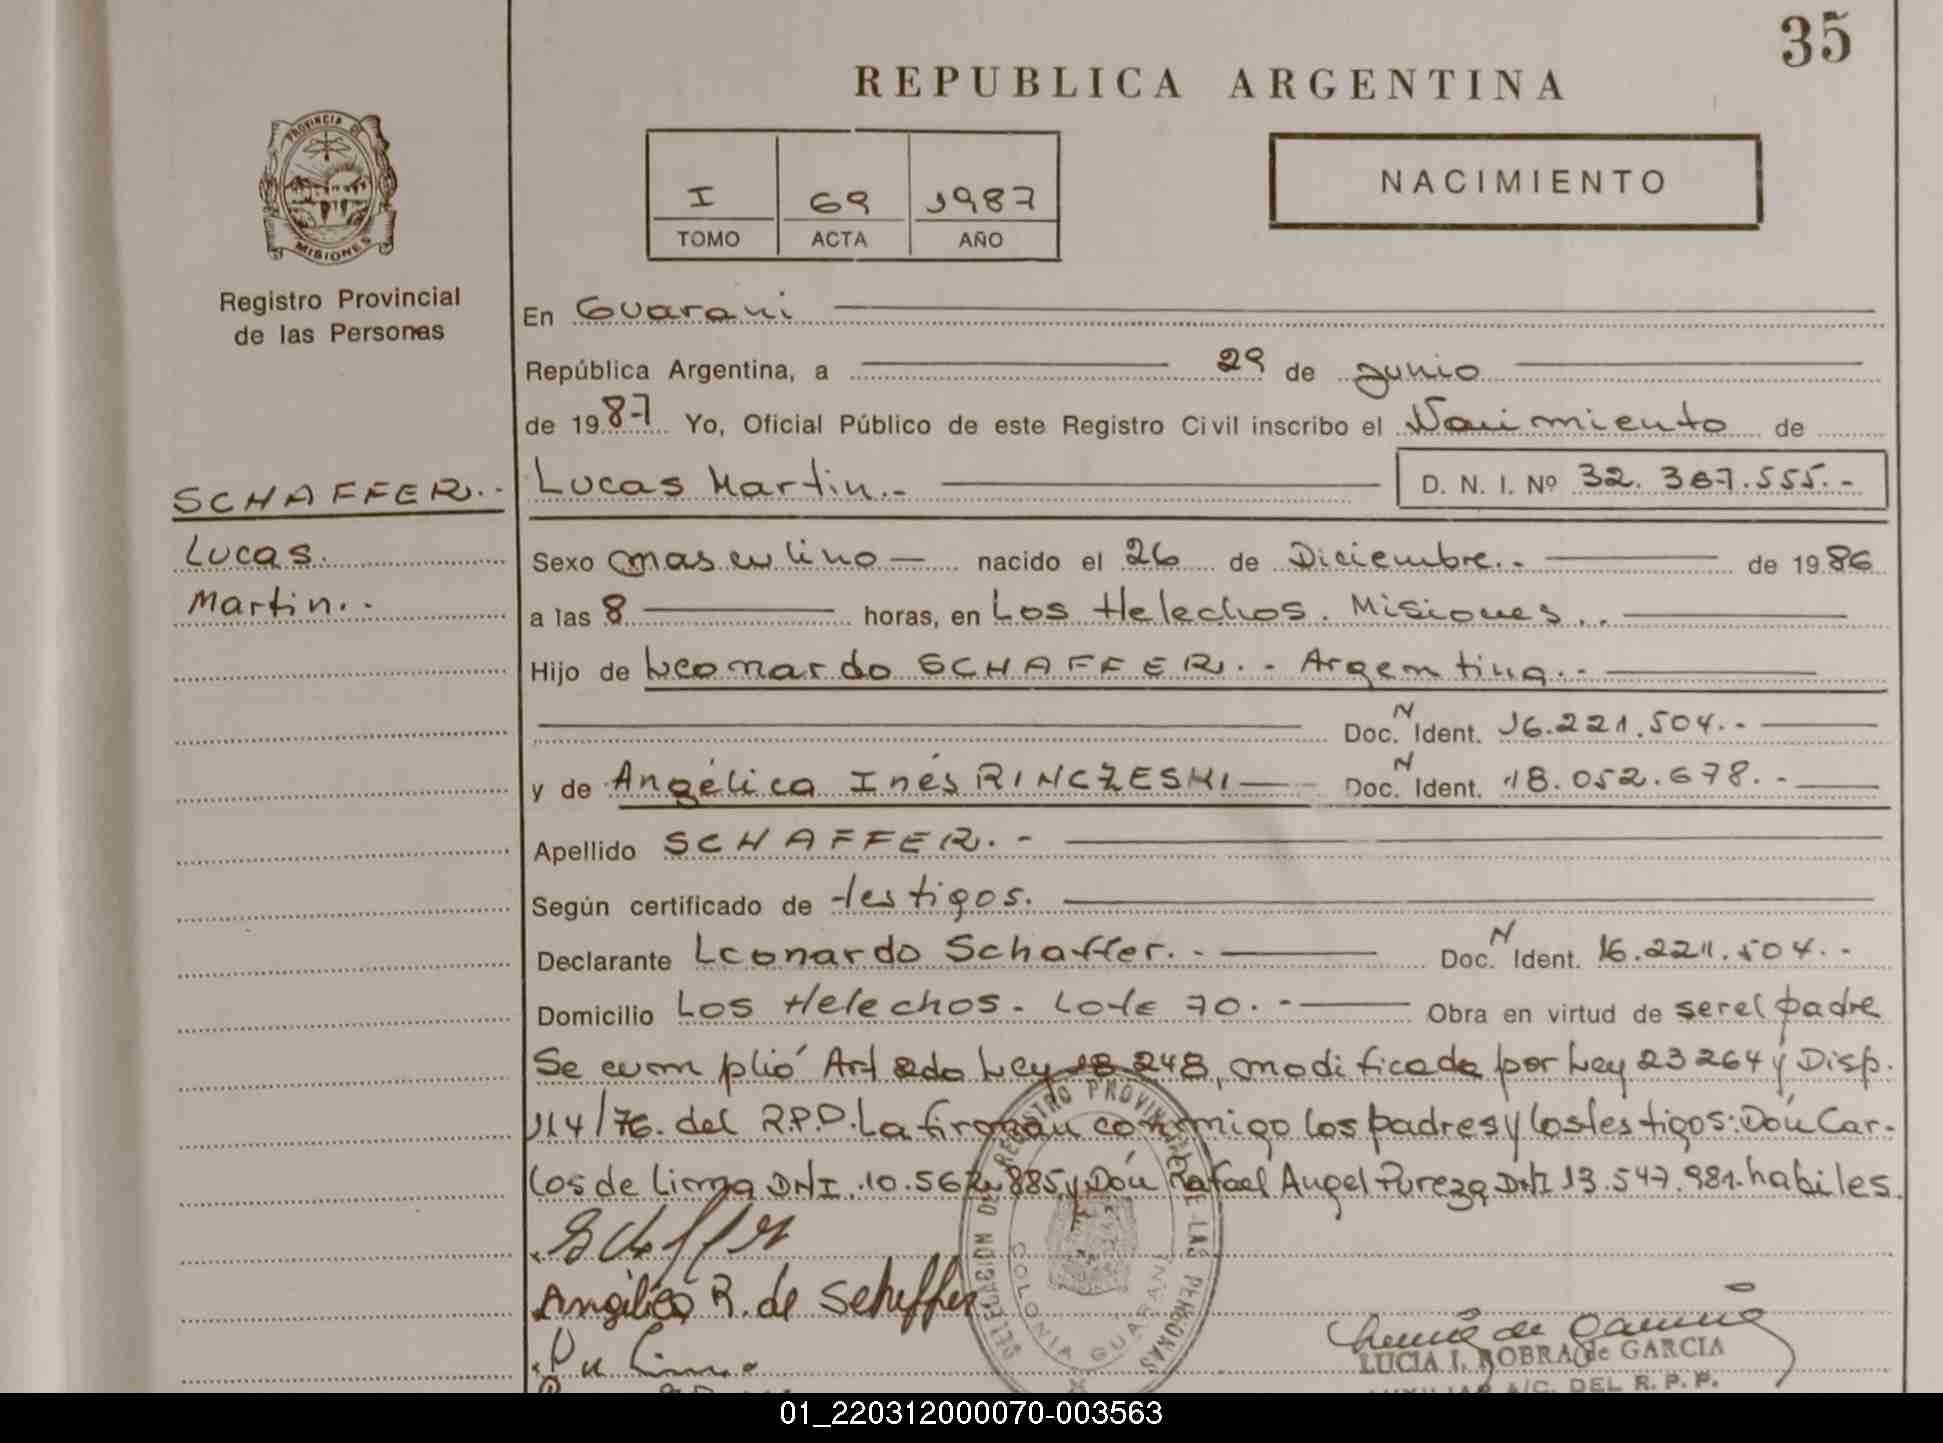 35
REPUBLICA ARGENTINA
PROVINCIA DE
MISIONES
I 69 1987
TOMO ACTA AÑO
NACIMIENTO
Registro Provincial
de las Personas
En Guarani
República Argentina, a 29 de junio
de 1987 Yo, Oficial Público de este Registro Civil inscribo el Nacimiento de
SCHAFFER.-
Lucas Martin.- D. N. I. Nº 32.387.555.-
Lucas.
Martin.-
Sexo masculino nacido el 26 de Diciembre.- de 1986
a las 8 horas, en Los Helechos. Misiones..
Hijo de Leonardo SCHAFFER.- Argentina.-
Doc. N Ident. 16.221.504.-
y de Angélica Inés RINCZESKI Doc. N Ident. 18.052.678.-
Apellido SCHAFFER.-
Según certificado de testigos.
Declarante Leonardo Schaffer.- Doc. N Ident. 16.221.504.-
Domicilio Los Helechos. Lote 70.- Obra en virtud de ser el padre
Se cumplió Art 2do Ley 18 248, modificada por Ley 23 264 y Disp.
114/76. del R.P.P. La firman conmigo los padres y los testigos: Don Car-
los de Lima DNI. 10.562.885 y Don Rafael Angel Pureza DNI 13.547.981. habiles.
Angélica R. de Scheffer
DELEGACION DEL REGISTRO PROVINCIAL DE LAS PERSONAS
COLONIA GUARANI
LUCIA I. BOBRA de GARCIA
AUXILIAR A/C. DEL R. P. P.
01_220312000070-003563